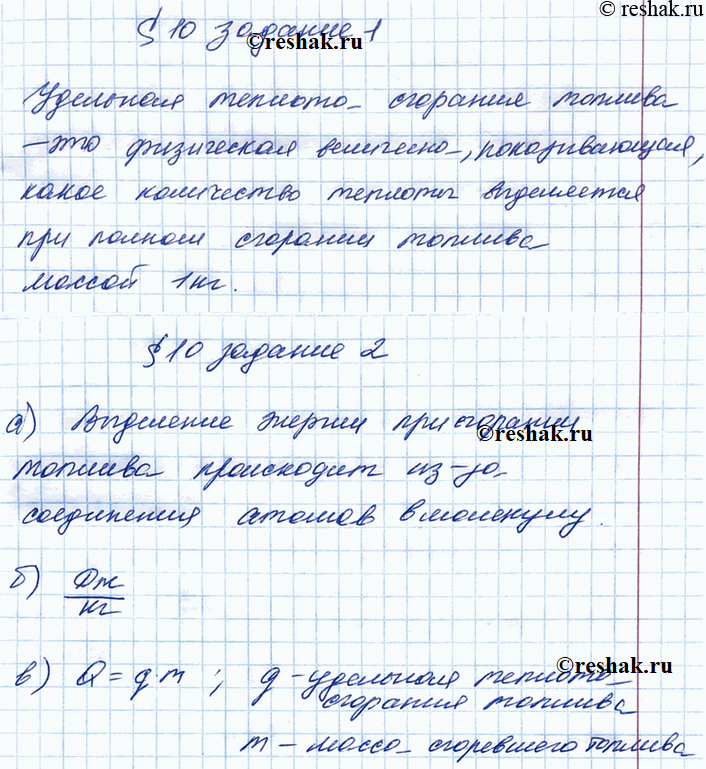 ©reshak.ru
§ 10 задание 1
©reshak.ru
Удельная теплота сгорания топлива
– это физическая величина, показывающая,
какое количество теплоты выделяется
при полном сгорании топлива
массой 1кг.
§ 10 задание 2
а) Выделение энергии при сгорании
©reshak.ru
топлива происходит из-за
соединения атомов в молекулу.
б) Дж
кг
©reshak.ru
в) Q = q·m ; q – удельная теплота
сгорания топлива
m – масса сгоревшего топлива